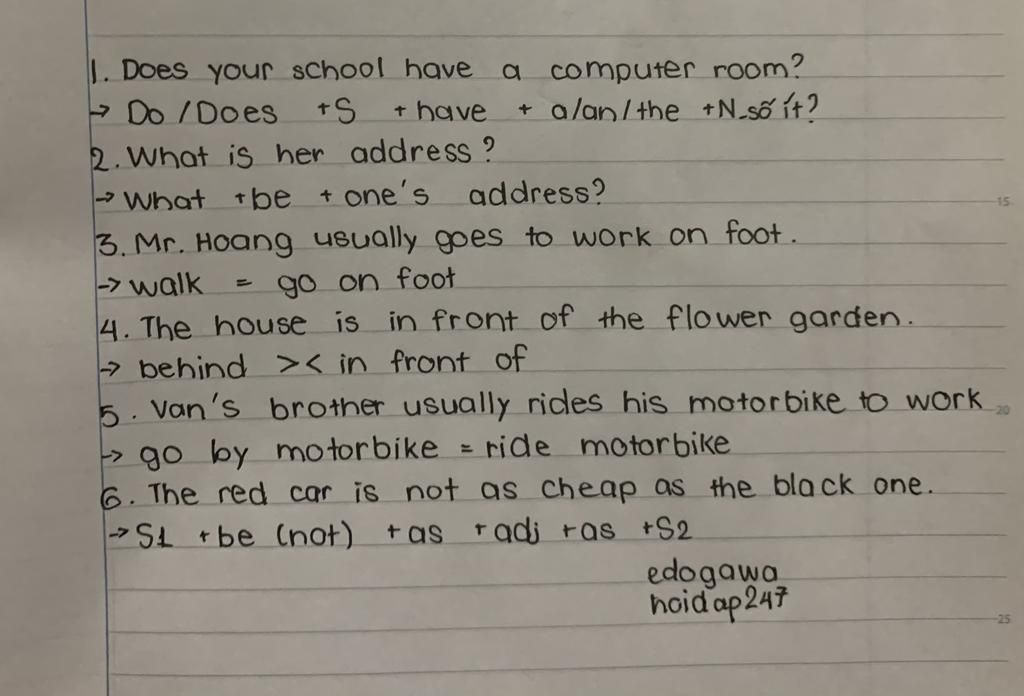 1. Does your school have a computer room?
→ Do / Does +S + have + a/an/the +N_số ít?
2. What is her address?
→ What +be + one's address?
3. Mr. Hoang usually goes to work on foot.
→ walk = go on foot
4. The house is in front of the flower garden.
→ behind >< in front of
5. Van's brother usually rides his motorbike to work
→ go by motorbike = ride motorbike
6. The red car is not as cheap as the black one.
→ S1 +be (not) + as + adj + as +S2
edogawa
hoidap247
15
20
25